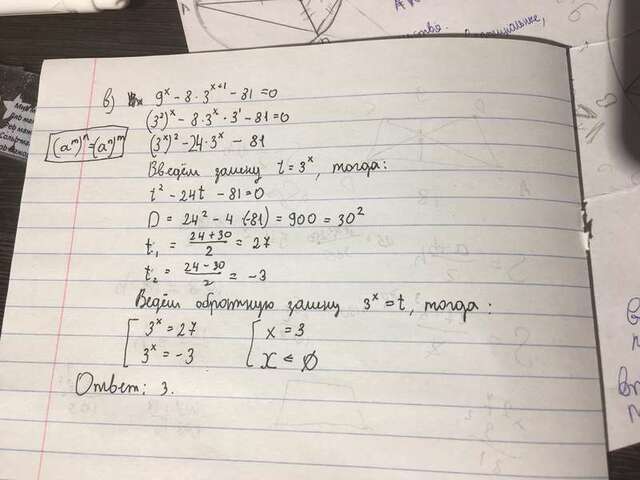 в) 9^x - 8 · 3^{x+1} - 81 = 0
(3²)^x - 8 · 3^x · 3¹ - 81 = 0
(a^m)^n = (a^n)^m
(3^x)² - 24 · 3^x - 81
Введём замену t = 3^x, тогда:
t² - 24t - 81 = 0
D = 24² - 4(-81) = 900 = 30²
t₁ = (24 + 30)/2 = 27
t₂ = (24 - 30)/2 = -3
Ведём обратную замену 3^x = t, тогда:
[ 3^x = 27 [ x = 3
[ 3^x = -3 [ x ∈ ∅
Ответ: 3.